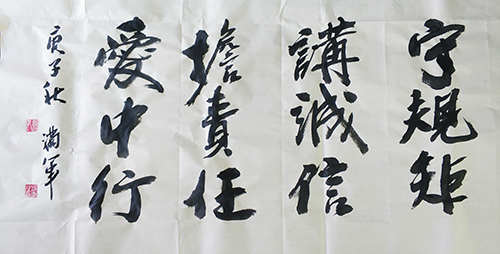 守規矩
講誠信
擔責任
愛中行
庚子秋 滿軍